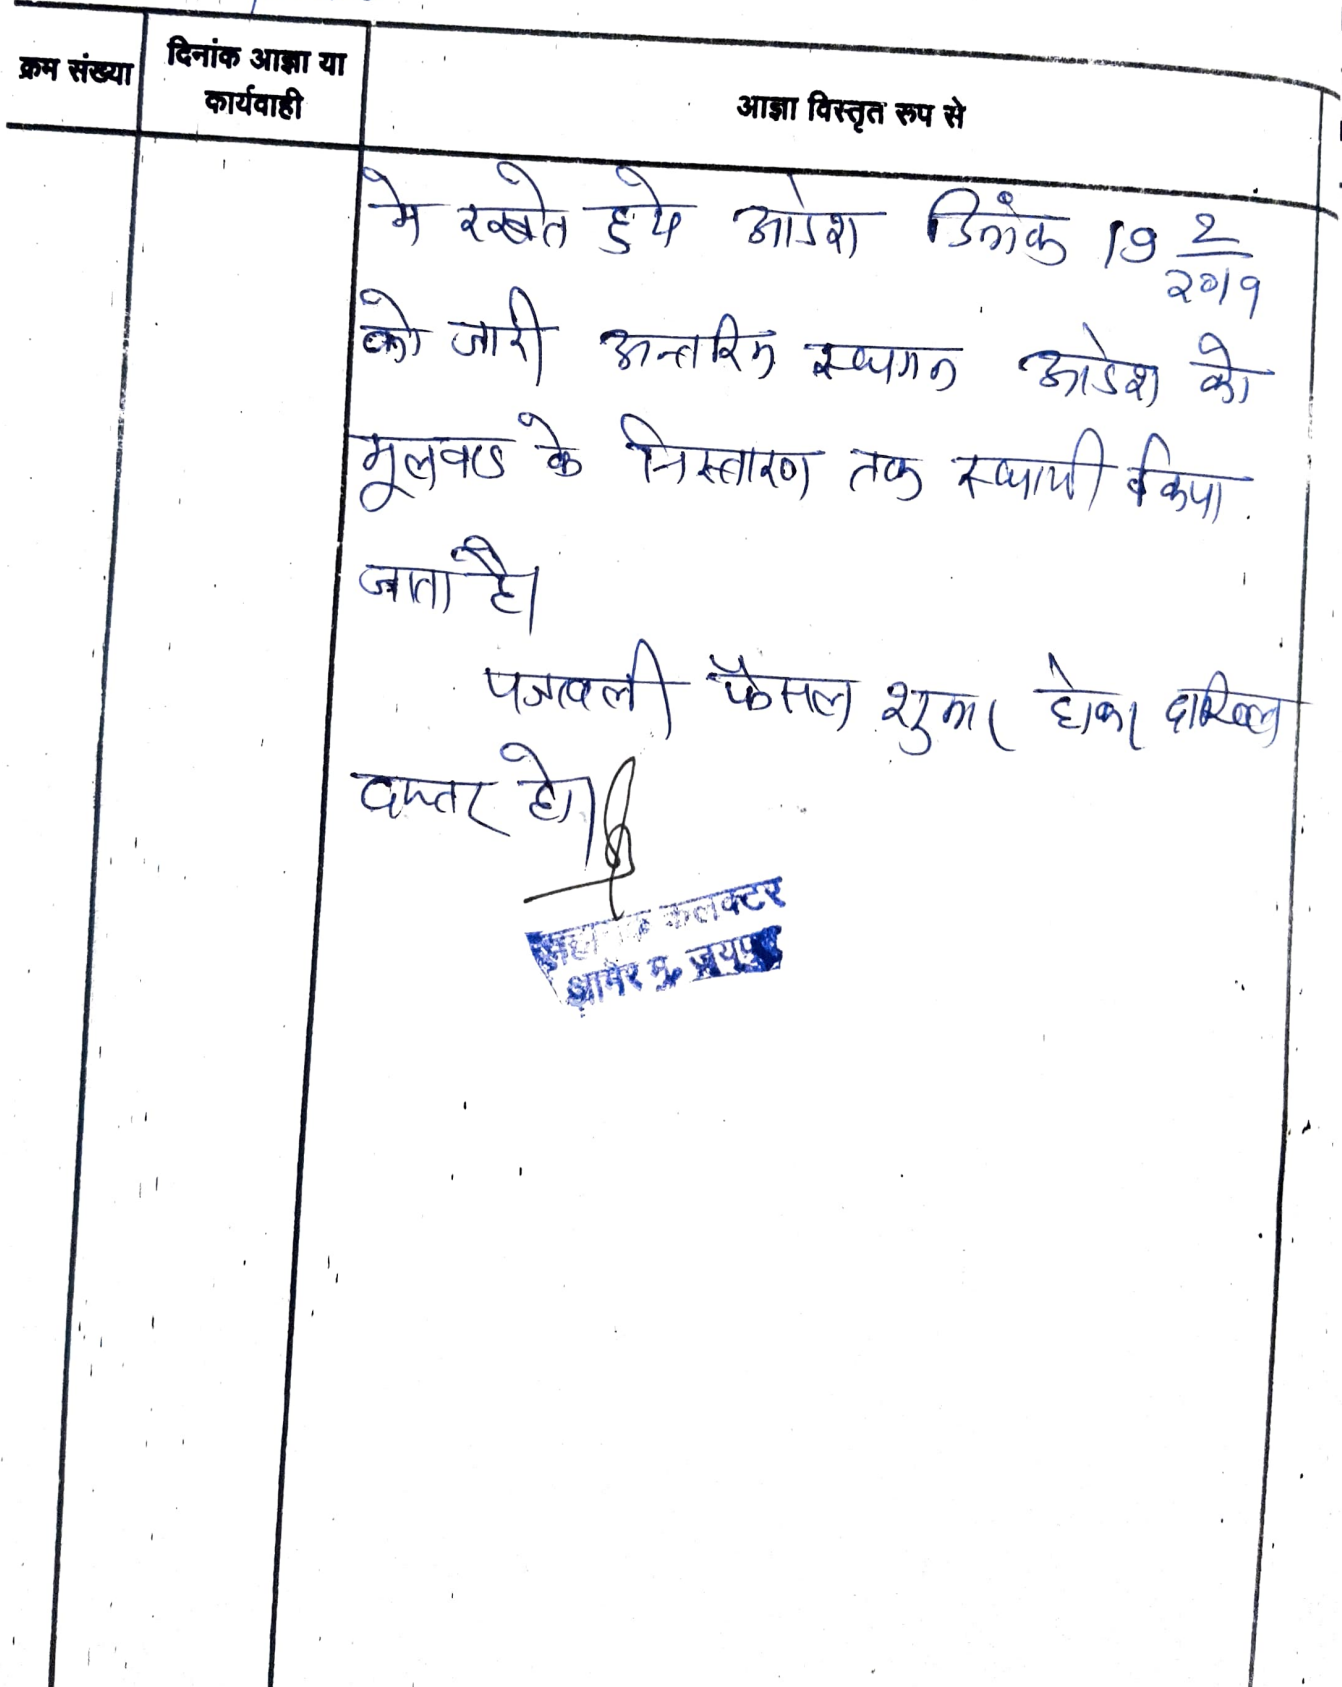 क्रम संख्या
दिनांक आज्ञा या
कार्यवाही
आज्ञा विस्तृत रूप से
मे रखते हुये आदेश दिनांक 19 2/2019
को जारी अन्तरिम स्थगन आदेश को
मूलवाद के निस्तारण तक स्थायी किया
जाता है।
पत्रावली फैसल शुमार होकर दाखिल
दफ्तर हो।
सहायक कलक्टर
आमेर मु. जयपुर